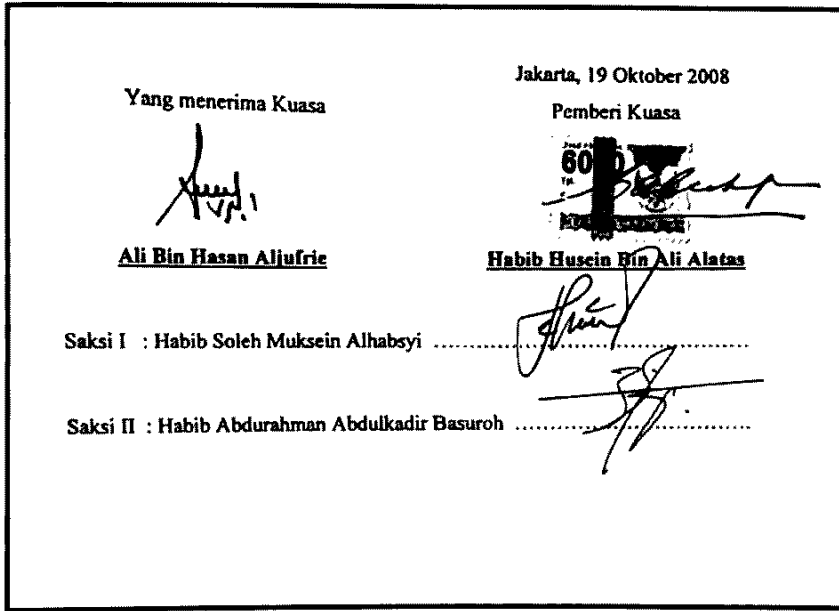 Jakarta, 19 Oktober 2008
Yang menerima Kuasa
Pemberi Kuasa
6000
Ali Bin Hasan Aljufrie
Habib Husein Bin Ali Alatas
Saksi I : Habib Soleh Muksein Alhabsyi ..........................................
Saksi II : Habib Abdurahman Abdulkadir Basuroh ...............................